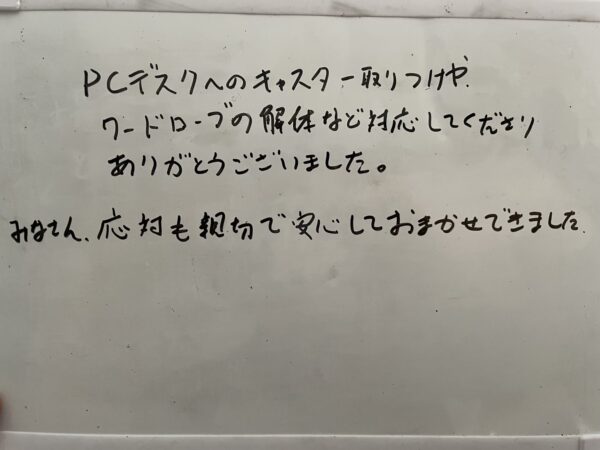 PCデスクへのキャスター取りつけや、
ワードローブの解体など対応してくださり
ありがとうございました。
みなさん、応対も親切で安心しておまかせできました。